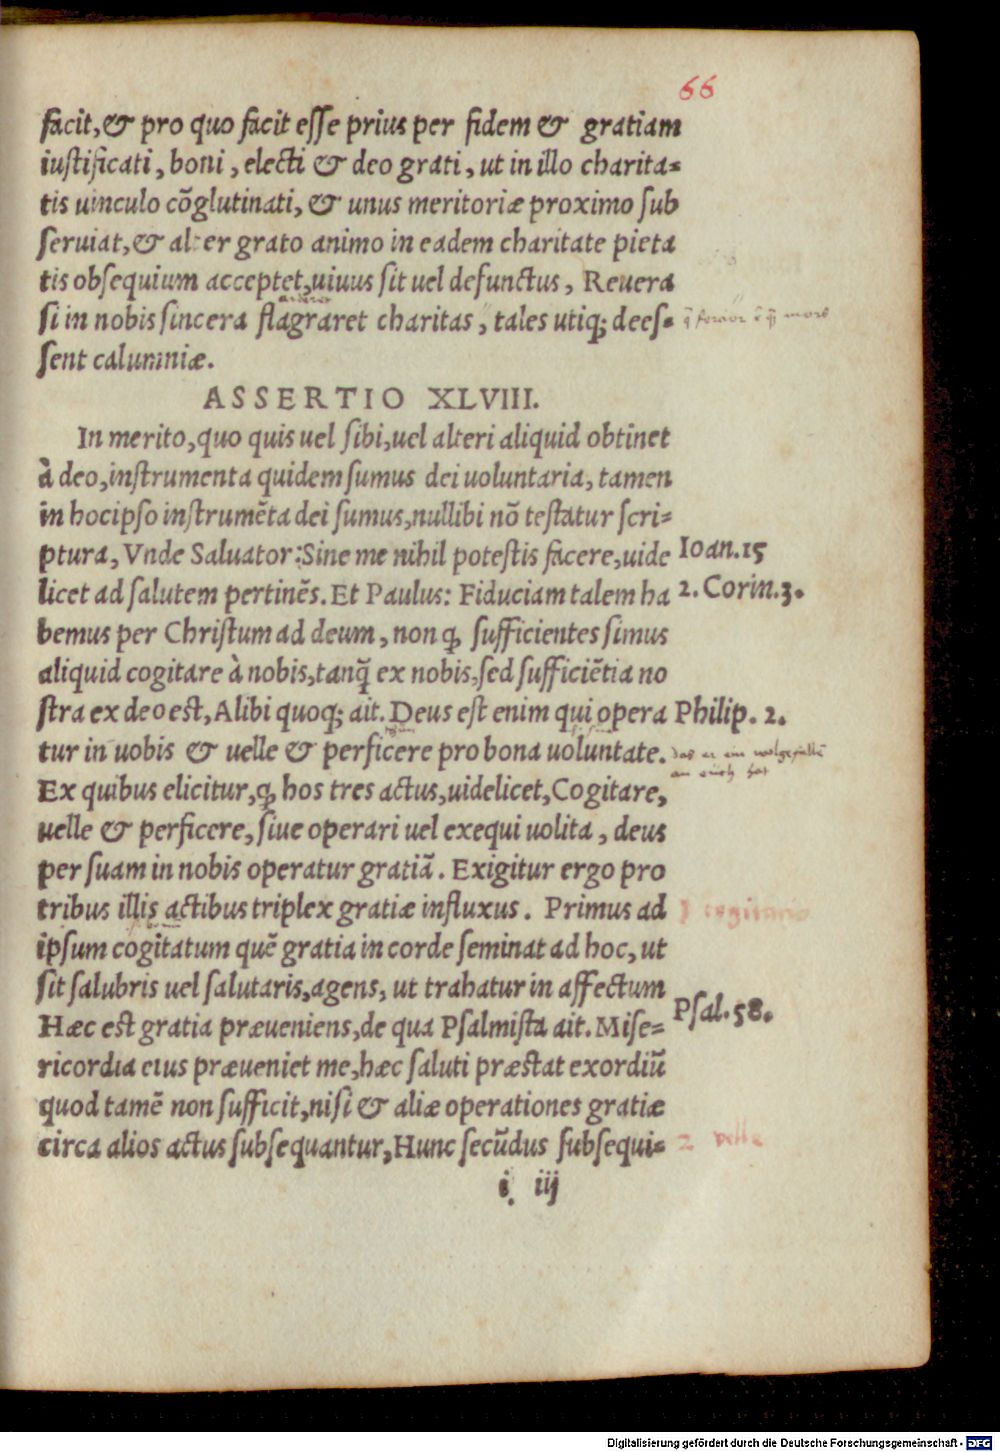 66
facit, & pro quo facit esse prius per fidem & gratiam
iustificati, boni, electi & deo grati, ut in illo charita-
tis uinculo cõglutinati, & unus meritoriæ proximo sub
seruiat, & alter grato animo in eadem charitate pieta
tis obsequium acceptet, uiuus sit uel defunctus, Reuera
si in nobis sincera flagraret charitas, tales utiq; deeſ-
ſent calumniæ.
ASSERTIO XLVIII.
In merito, quo quis uel ſibi, uel alteri aliquid obtinet
à deo, inſtrumenta quidem ſumus dei uoluntaria, tamen
in hocipſo inſtrumẽta dei ſumus, nullibi nõ teſtatur ſcri-
ptura, Vnde Saluator: Sine me nihil poteſtis facere, uide
Ioan. 15
licet ad ſalutem pertinẽs. Et Paulus: Fiduciam talem ha
2. Corin. 3.
bemus per Chriſtum ad deum, non ꝙ ſufficientes ſimus
aliquid cogitare à nobis, tanq̃ ex nobis, ſed ſufficiẽtia no
ſtra ex deo eſt, Alibi quoq; ait. Deus eſt enim qui opera
Philip. 2.
tur in uobis & uelle & perficere pro bona uoluntate.
Ex quibus elicitur, ꝙ hos tres actus, uidelicet, Cogitare,
uelle & perficere, ſiue operari uel exequi uolita, deus
per ſuam in nobis operatur gratiã. Exigitur ergo pro
tribus illis actibus triplex gratiæ influxus. Primus ad
ipſum cogitatum quẽ gratia in corde ſeminat ad hoc, ut
ſit ſalubris uel ſalutaris, agens, ut trahatur in affectum
Hæc eſt gratia præueniens, de qua Pſalmiſta ait. Miſe-
Pſal. 58.
ricordia eius præueniet me, hæc ſaluti præſtat exordiũ
quod tamẽ non ſufficit, niſi & aliæ operationes gratiæ
circa alios actus ſubſequantur, Hunc ſecũdus ſubſequi-
2 velle
i iij
Digitalisierung gefördert durch die Deutsche Forschungsgemeinschaft - DFG